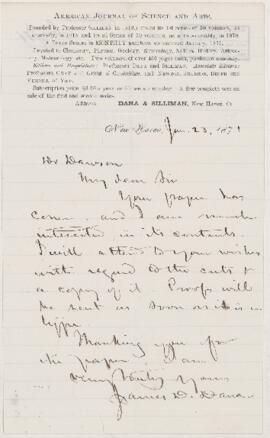 AMERICAN JOURNAL OF SCIENCE AND ARTS.
Founded by Professor SILLIMAN in 1818,
Devoted to Chemistry, Physics, Geology, Mineralogy, Natural History, Astronomy, Meteorology, etc.
Editors and Proprietors: Professors DANA and SILLIMAN. Associate Editors:
Professors GRAY and GIBBS of Cambridge, and NEWTON, JOHNSON, BRUSH and
VERRILL of Yale.
Address DANA & SILLIMAN, New Haven, Ct.
New Haven, Jan. 23, 1871
Dr Dawson
My dear Sir
Your paper has
come, and I am much
interested in its contents.
I will attend to your wishes
with regard to the cuts &
a copy of it. Proofs will
be sent as soon as it is in
type.
Thanking you for
the paper, I am
Very truly yours
James D. Dana